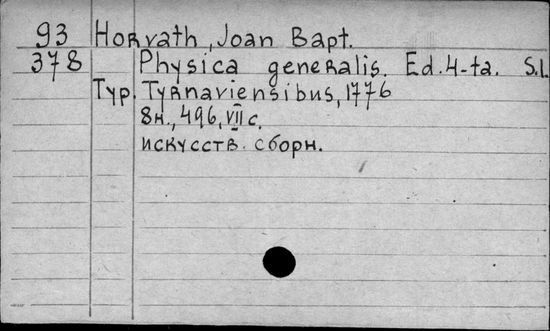 93 Horvath, Joan Bapt.
378 Physica generalis. Ed. 4-ta. S.l.
Typ. Tyrnaviensibus, 1776
8н., 496, VII с.
искусств. сборн.